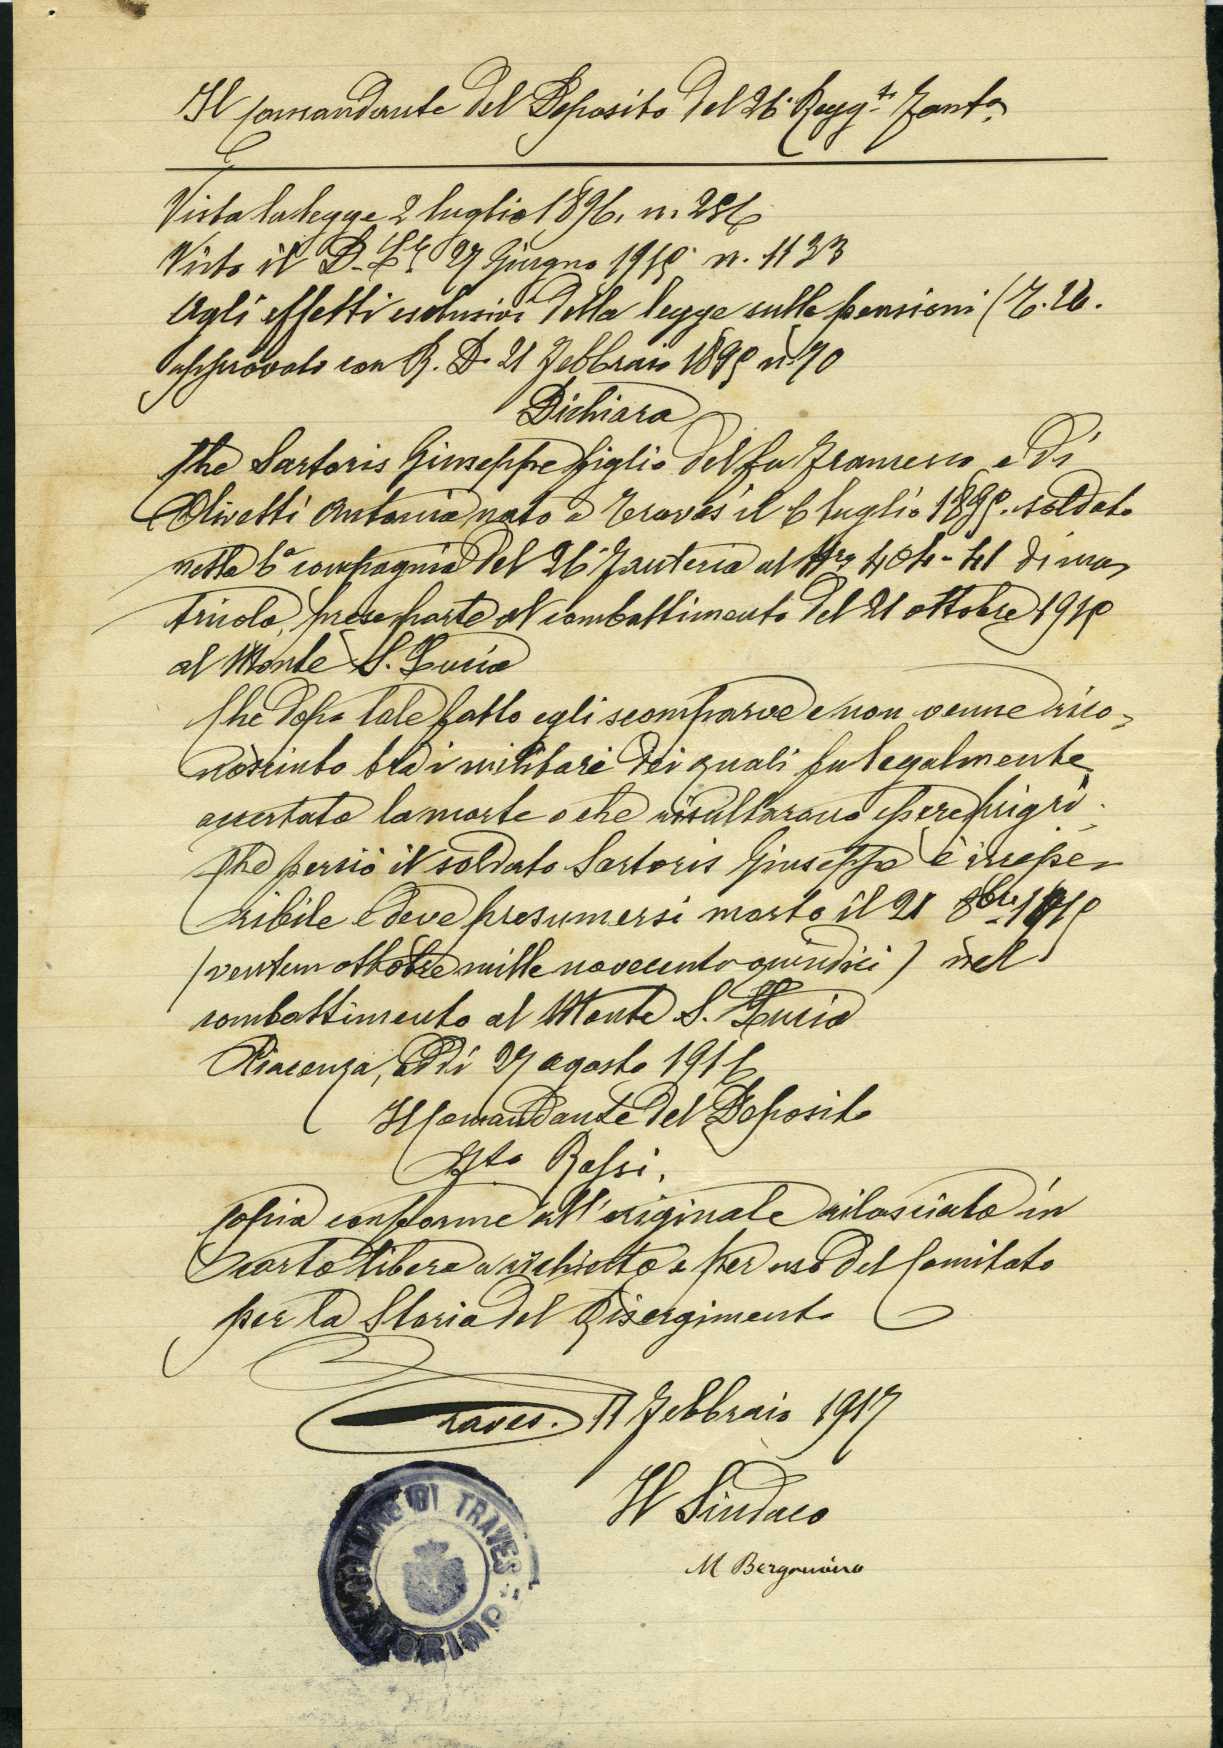 Il Comandante del Deposito del 26° Regg.to Fant.a
Vista la legge 2 luglio 1896. n. 256
Visto il D. Lt 27 Giugno 1915 n. 1133
Agli effetti esclusivi della legge sulle pensioni (T. U.
approvato con R. D. 21 Febbraio 1895 n. 70
Dichiara
Che Sartoris Giuseppe figlio del fu Francesco e di
Olivetti Antonia nato a Traves il 6 luglio 1895. soldato
nella 6a compagnia del 26 Fanteria al Nro 404-41 di ma,
tricola, prese parte al combattimento del 21 ottobre 1915
al Monte S. Lucia
Che dopo tale fatto egli scomparve e non venne rico,
nosciuto tra i militari dei quali fu legalmente
accertata la morte o che risultarano essere prigri.
Che perciò il soldato Sartoris Giuseppe è irrepe,
ribile e deve presumersi morto il 21 8bre 1915
(ventun ottobre mille novecento quindici) nel
combattimento al Monte S. Lucia
Piacenza, Addì 27 agosto 1916
Il Comandante del Deposito
Fto Rossi.
Copia conforme all'originale rilasciata in
carta libera a richiesta e per uso del Comitato
per la Storia del Risorgimento
Traves. 11 Febbraio 1917
Il Sindaco
M Bergamino
COMUNE DI TRAVES
TORINO